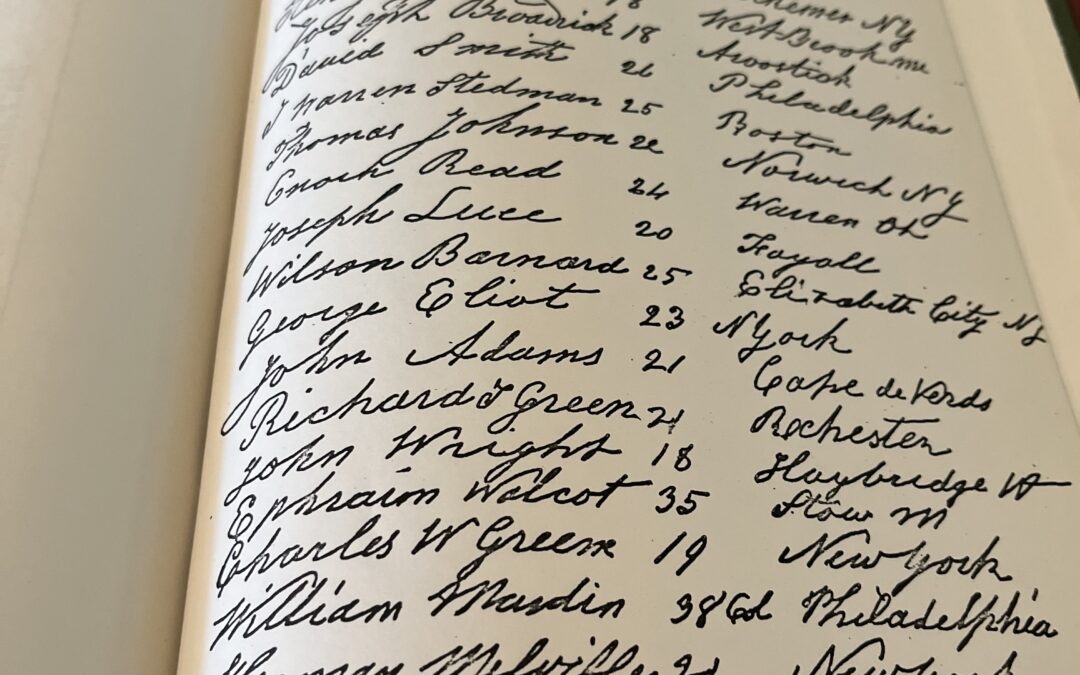 NY
18 West Brook me
Joseph Broadrick 18 Aroostick
David Smith 26 Philadelphia
J Warren Stedman 25 Boston
Thomas Johnson 22 Norwich NY
Enoch Read 24 Warren Oh
Joseph Luce 20 Fayall
Wilson Barnard 25 Elizabeth City NJ
George Eliot 23 N York
John Adams 21 Cape de Verds
Richard T Green 21 Rochester
John Wright 18 Haybridge Vt
Ephraim Walcot 35 Stow m
Charles W Green 19 New York
William Maudin 38 Cld Philadelphia
Herman Melville 21 New York